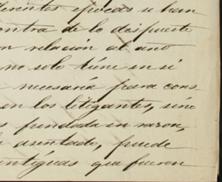 ferentes épocas se han
contra de lo dispuesto
en relacion al año
no solo tiene en si
necesaria para cons
en los litigantes, sino
fundada en razon,
asentado, puede
antiguas que fueron